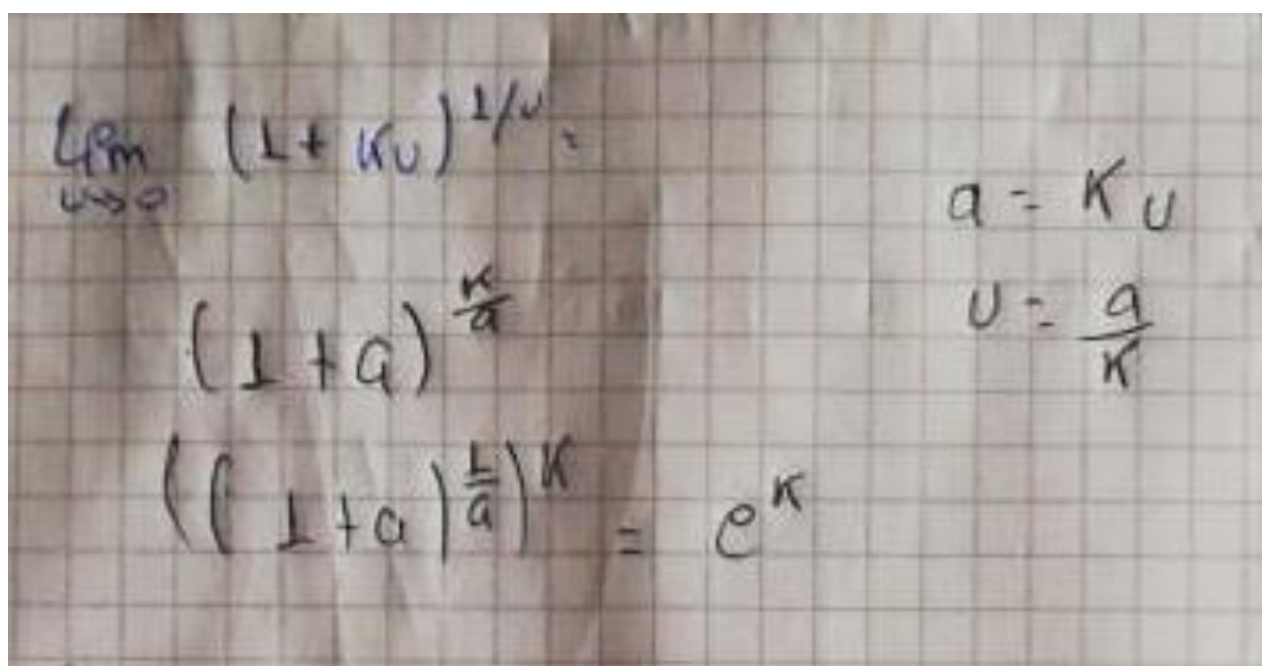 lim (1 + KU)^{1/U} =
U→0
a = K U
(1 + a)^{K/a}
U = a/K
((1 + a)^{1/a})^K = e^K